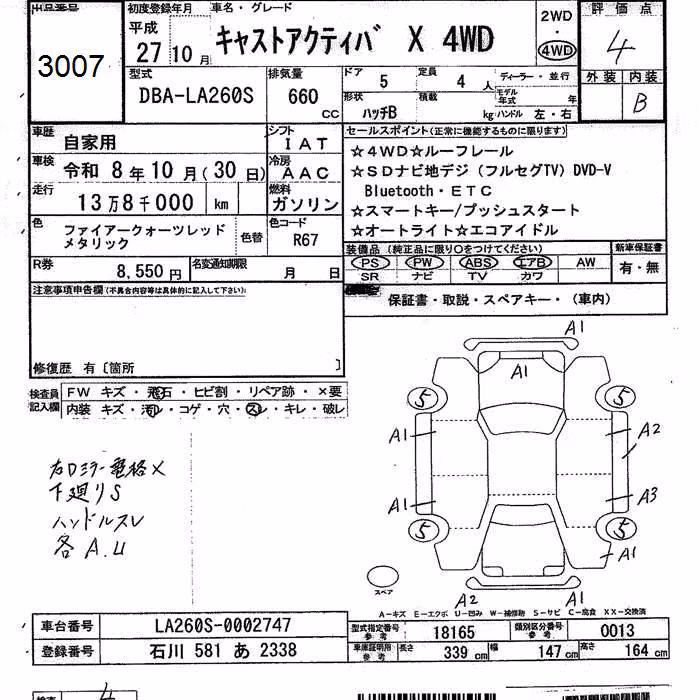 出品番号
3007
初度登録年月
平成
27 10 月
車名・グレード
キャストアクティバ X 4WD
2WD
4WD
評価点
4
外装 内装
B
型式
DBA-LA260S
排気量
660 CC
ドア 5
定員 4 人
形状 ハッチB
積載 kg
ディーラー・並行
モデル年式 年
ハンドル 左・右
車歴 自家用
シフト IAT
車検 令和 8 年 10 月 (30 日)
冷房 AAC
走行 13万8千000 km
燃料 ガソリン
色 ファイアークォーツレッド
メタリック
色替
色コード R67
R券 8,550 円
名変通知期限 月 日
セールスポイント(正常に機能するものに限ります)
☆4WD☆ルーフレール
☆SDナビ地デジ(フルセグTV)DVD-V
Bluetooth・ETC
☆スマートキー/プッシュスタート
☆オートライト☆エコアイドル
装備品(純正品に限り○をつけてください)
新車保証書
PS PW ABS エアB AW
SR ナビ TV カワ
有・無
保証書・取説・スペアキー・(車内)
注意事項申告欄(不具合内容等は具体的に記入して下さい)
修復歴 有〔箇所 〕
検査員記入欄
FW キズ・飛石・ヒビ割・リペア跡・×要
内装 キズ・汚レ・コゲ・穴・スレ・キレ・破レ
右Dミラー電格×
下廻りS
ハンドルスレ
各A.U
A1
A1
5 5
A1 A2
A1 A3
5 5
A1
スペア
A2 A1
A-キズ E-エクボ U-凹み W-補修跡 S-サビ C-腐食 XX-交換済
車台番号 LA260S-0002747
登録番号 石川 581 あ 2338
型式指定番号 参考 18165
類別区分番号 参考 0013
車庫証明用 参考 長さ 339 cm 幅 147 cm 高さ 164 cm
4